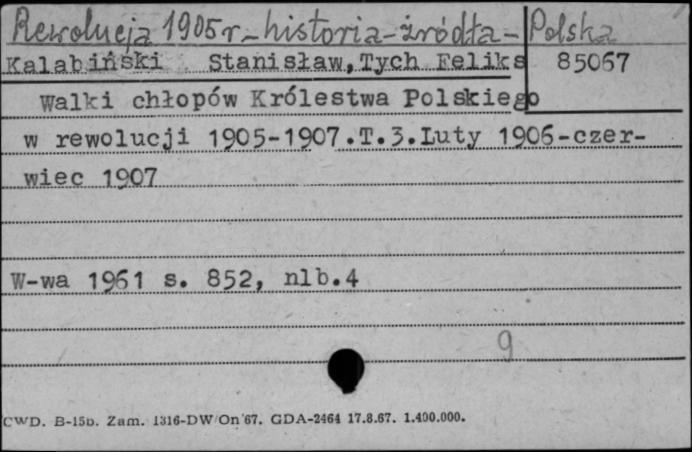 Rewolucja 1905 r - historia - źródła - Polska
Kalabiński Stanisław, Tych Feliks 85067
Walki chłopów Królestwa Polskiego
w rewolucji 1905-1907.T.3.Luty 1906-czer-
wiec 1907
W-wa 1961 s. 852, nlb.4
9
CWD. B-15b. Zam. 1316-DW/On/67. GDA-2464 17.8.67. 1.400.000.